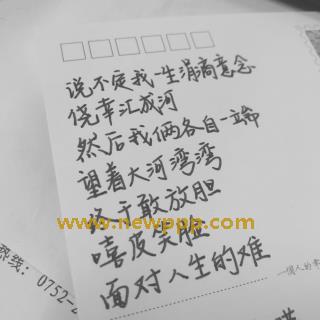 说不定我一生涓滴意念
侥幸汇成河
然后我俩各自一端
望着大河湾湾
终于敢放胆
www.newppp.com
嘻皮笑脸
面对人生的难
热线: 0752-2
一個人的